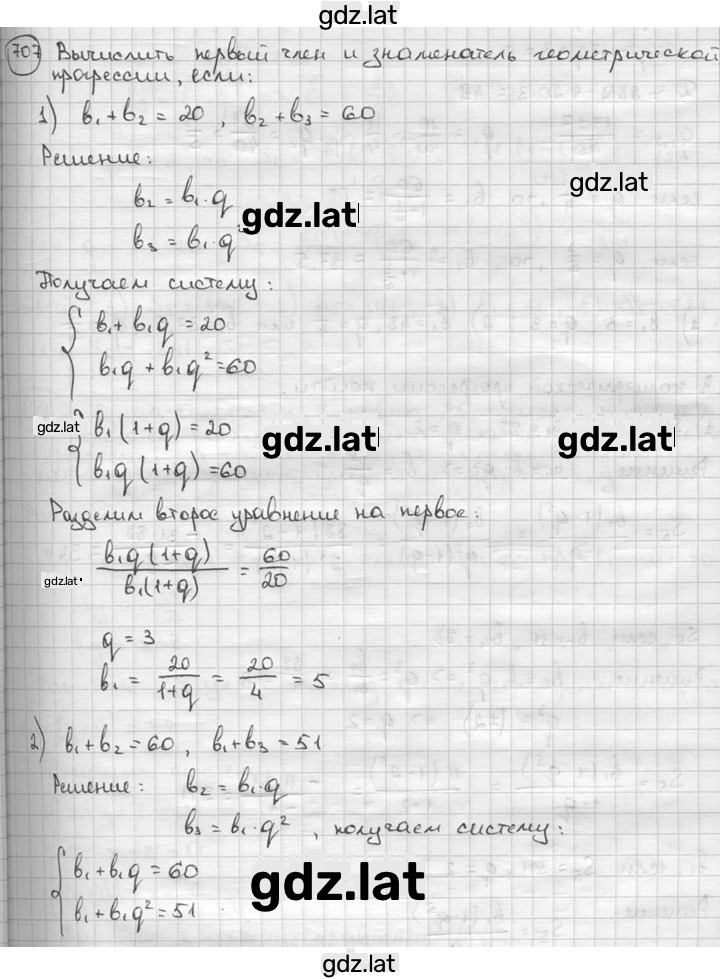 gdz.lat
707 Вычислить первый член и знаменатель геометрической
прогрессии, если:
1) b₁ + b₂ = 20, b₂ + b₃ = 60
Решение:
gdz.lat
b₂ = b₁·q
gdz.lat
b₃ = b₁·q
Получаем систему:
b₁ + b₁q = 20
b₁q + b₁q² = 60
gdz.lat b₁(1+q) = 20 gdz.lat gdz.lat
b₁q(1+q) = 60
Разделим второе уравнение на первое:
gdz.lat b₁q(1+q) / b₁(1+q) = 60/20
q = 3
b₁ = 20/(1+q) = 20/4 = 5
2) b₁ + b₂ = 60, b₁ + b₃ = 51
Решение: b₂ = b₁·q
b₃ = b₁·q², получаем систему:
b₁ + b₁q = 60
gdz.lat
b₁ + b₁q² = 51
gdz.lat